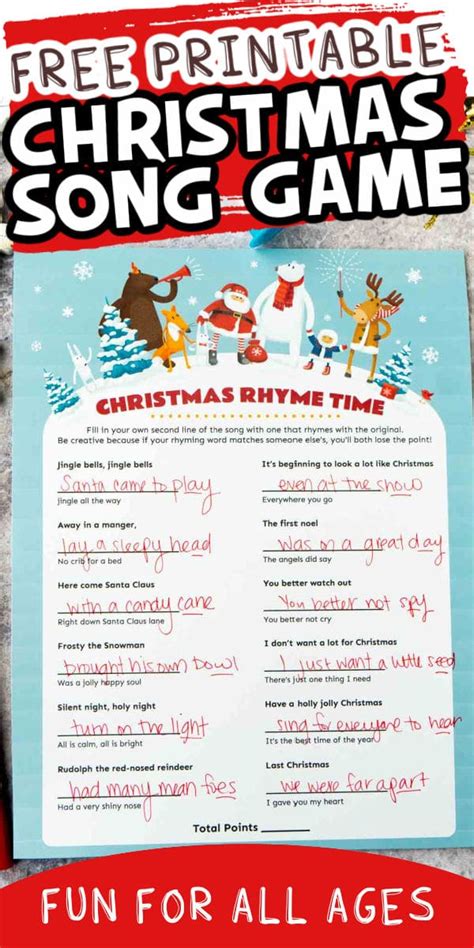 FREE PRINTABLE
CHRISTMAS
SONG GAME
CHRISTMAS RHYME TIME
Fill in your own second line of the song with one that rhymes with the original.
Be creative because if your rhyming word matches someone else's, you'll both lose the point!
Jingle bells, jingle bells
Santa came to play
Jingle all the way
Away in a manger,
lay a sleepy head
No crib for a bed
Here come Santa Claus
with a candy cane
Right down Santa Claus lane
Frosty the Snowman
brought his own bowl
Was a jolly happy soul
Silent night, holy night
turn on the light
All is calm, all is bright
Rudolph the red-nosed reindeer
had many mean foes
Had a very shiny nose
It's beginning to look a lot like Christmas
even at the show
Everywhere you go
The first noel
was on a great day
The angels did say
You better watch out
You better not spy
You better not cry
I don't want a lot for Christmas
I just want a little seed
There's just one thing I need
Have a holly jolly Christmas
sing for everyone to hear
It's the best time of the year
Last Christmas
we were far apart
I gave you my heart
Total Points
FUN FOR ALL AGES